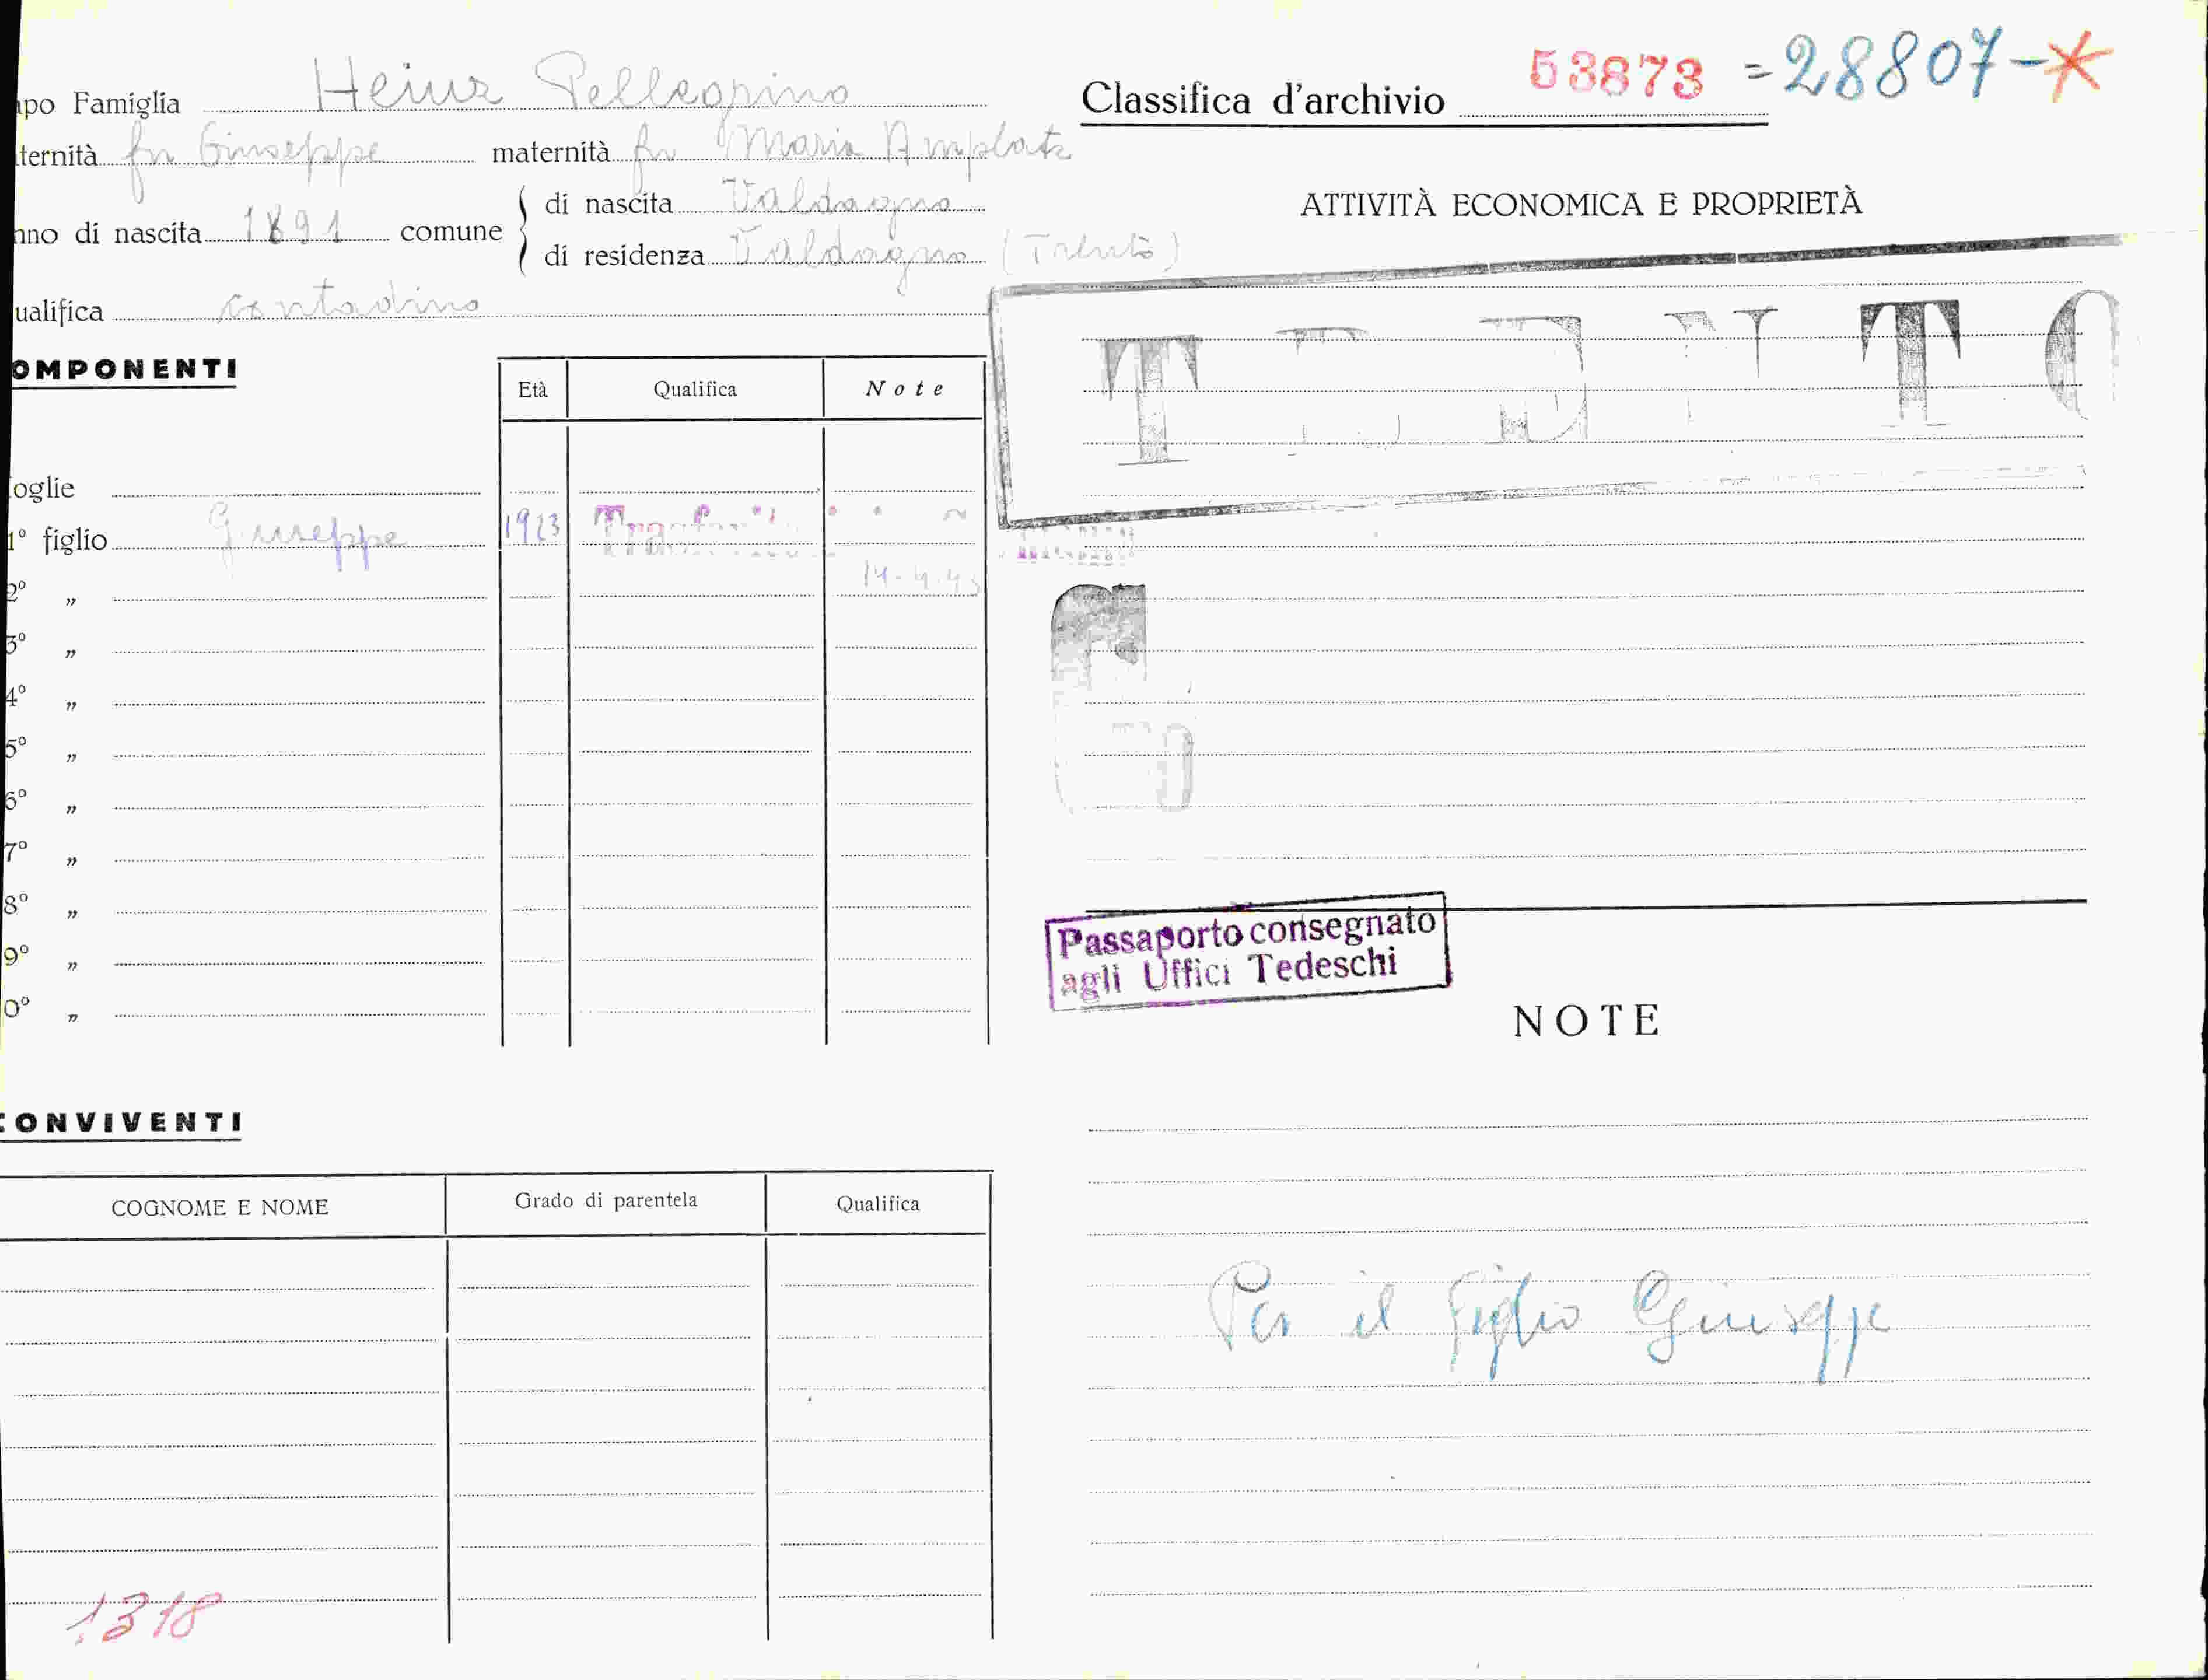 apo Famiglia Heinz Pellegrino
ternità fu Giuseppe maternità fu Maria Amplatz
nno di nascita 1891 comune
di nascita Valdagno
di residenza Valdagno (Trento)
ualifica contadino
OMPONENTI
Età Qualifica Note
oglie
1° figlio Giuseppe 1923
14-4-43
2° „
3° „
4° „
5° „
6° „
7° „
8° „
9° „
0° „
CONVIVENTI
COGNOME E NOME Grado di parentela Qualifica
1318
Classifica d'archivio 53873 = 28807-*
ATTIVITÀ ECONOMICA E PROPRIETÀ
Passaporto consegnato
agli Uffici Tedeschi
NOTE
Per il figlio Giuseppe